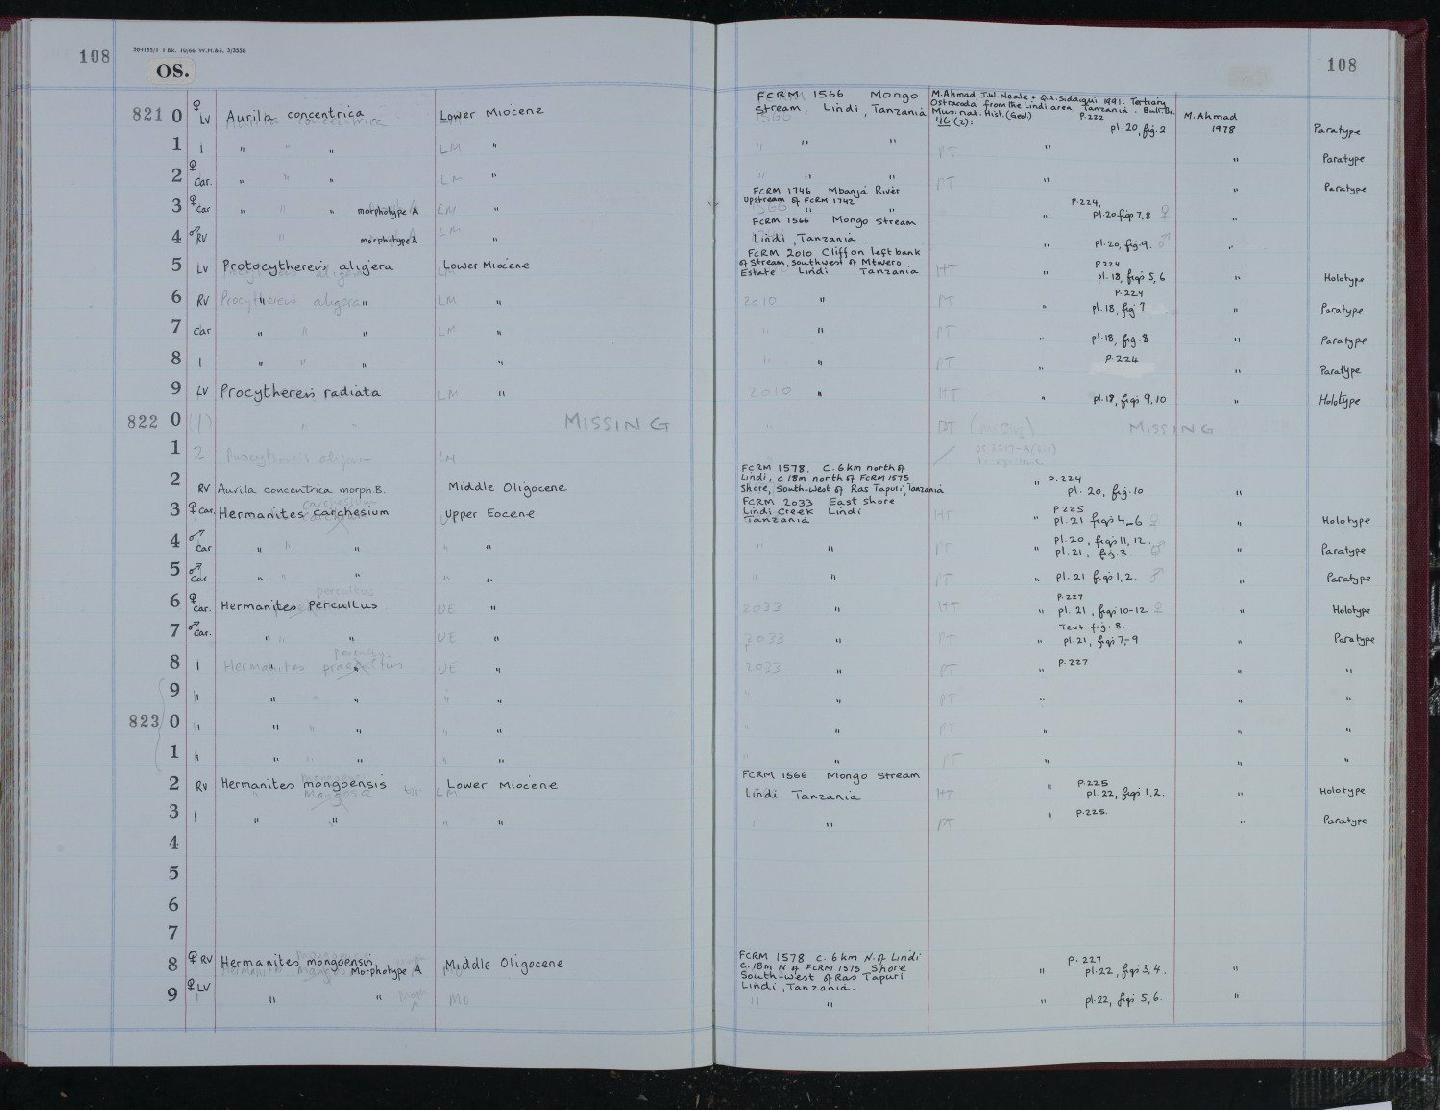 108
108
OS.
821 0 ♀ LV Aurila concentrica Lower Miocene FCRM 1566 Mongo stream Lindi, Tanzania M. Ahmad 1978 Paratype
Ostracoda from the Lindi area Tanzania. Bull. Br. Mus. nat. Hist. (Geol) 1991. Tertiary
p.222
pl. 20, fig. 2
1 1 " " " LM " " " PT " " Paratype
2 ♀ Car. " " " LM " " " " PT " " Paratype
3 ♀ Car " " " morphotype A LM " FCRM 1746 Mbanja River Upstream of FCRM 1742 " p.224, pl. 20 figs 7, 8 ♀ " Paratype
4 ♂ RV " morphotype A LM " FCRM 1566 Mongo stream Lindi, Tanzania " pl. 20, fig. 9. ♂ "
5 LV Protocythereis aligera Lower Miocene FCRM 2010 Cliff on left bank of Stream, southwest of Mtwero Estate Lindi Tanzania HT " p.224 pl. 18, figs 5, 6 " Holotype
6 RV Procythereis aligera " LM " 2010 " PT " p.224 pl. 18, fig 7 " Paratype
7 Car " " " LM " " " PT " pl. 18, fig. 8 " Paratype
8 1 " " " " " " PT " p.224 " Paratype
9 LV Procythereis radiata LM " 2010 " HT " pl. 18, figs 9, 10 " Holotype
822 0 (1) " " MISSING " PT (missing) MISSING
1 2 LM
2 RV Aurila concentrica morph. B. Middle Oligocene FCRM 1578. C. 6km north of Lindi, c 18m north of FCRM 1575 Shore, South-west of Ras Tapuri, Tanzania " p.224 pl. 20, fig. 10 "
3 ♀ Car. Hermanites carchesium Upper Eocene FCRM 2033 East shore Lindi Creek Lindi Tanzania HT " p.225 pl. 21 figs 4–6 ♀ " Holotype
4 ♂ Car " " " " " " " PT " pl. 20, figs 11, 12. pl. 21, fig. 3 ♂ " Paratype
5 ♂ Car " " " " " " " PT " pl. 21 figs 1, 2. ♂ " Paratype
6 ♀ Car. Hermanites percultus UE " 2033 " HT " p.227 pl. 21, figs 10–12 ♀ " Holotype
7 ♂ Car. " " " UE " 2033 " PT " Text fig. 8. pl. 21, figs 7–9 " Paratype
8 1 Hermanites UE " 2033 " PT " p.227 " "
9 " " " " " " " PT " " "
823 0 " " " " " " " " PT " " "
1 " " " " " " " " PT " " "
2 RV Hermanites mongoensis Lower Miocene FCRM 1566 Mongo stream Lindi Tanzania HT " p.225 pl. 22, figs 1, 2. " Holotype
3 1 " " " " " PT " p.225. " Paratype
4
5
6
7
8 ♀ RV Hermanites mongoensis Morphotype A Middle Oligocene FCRM 1578 C. 6km N. of Lindi c. 18m N of FCRM 1575 Shore South-west of Ras Tapuri Lindi, Tanzania. " p. 227 pl. 22, figs 3, 4. "
9 ♀ LV " " MO " " " pl. 22, figs 5, 6. "